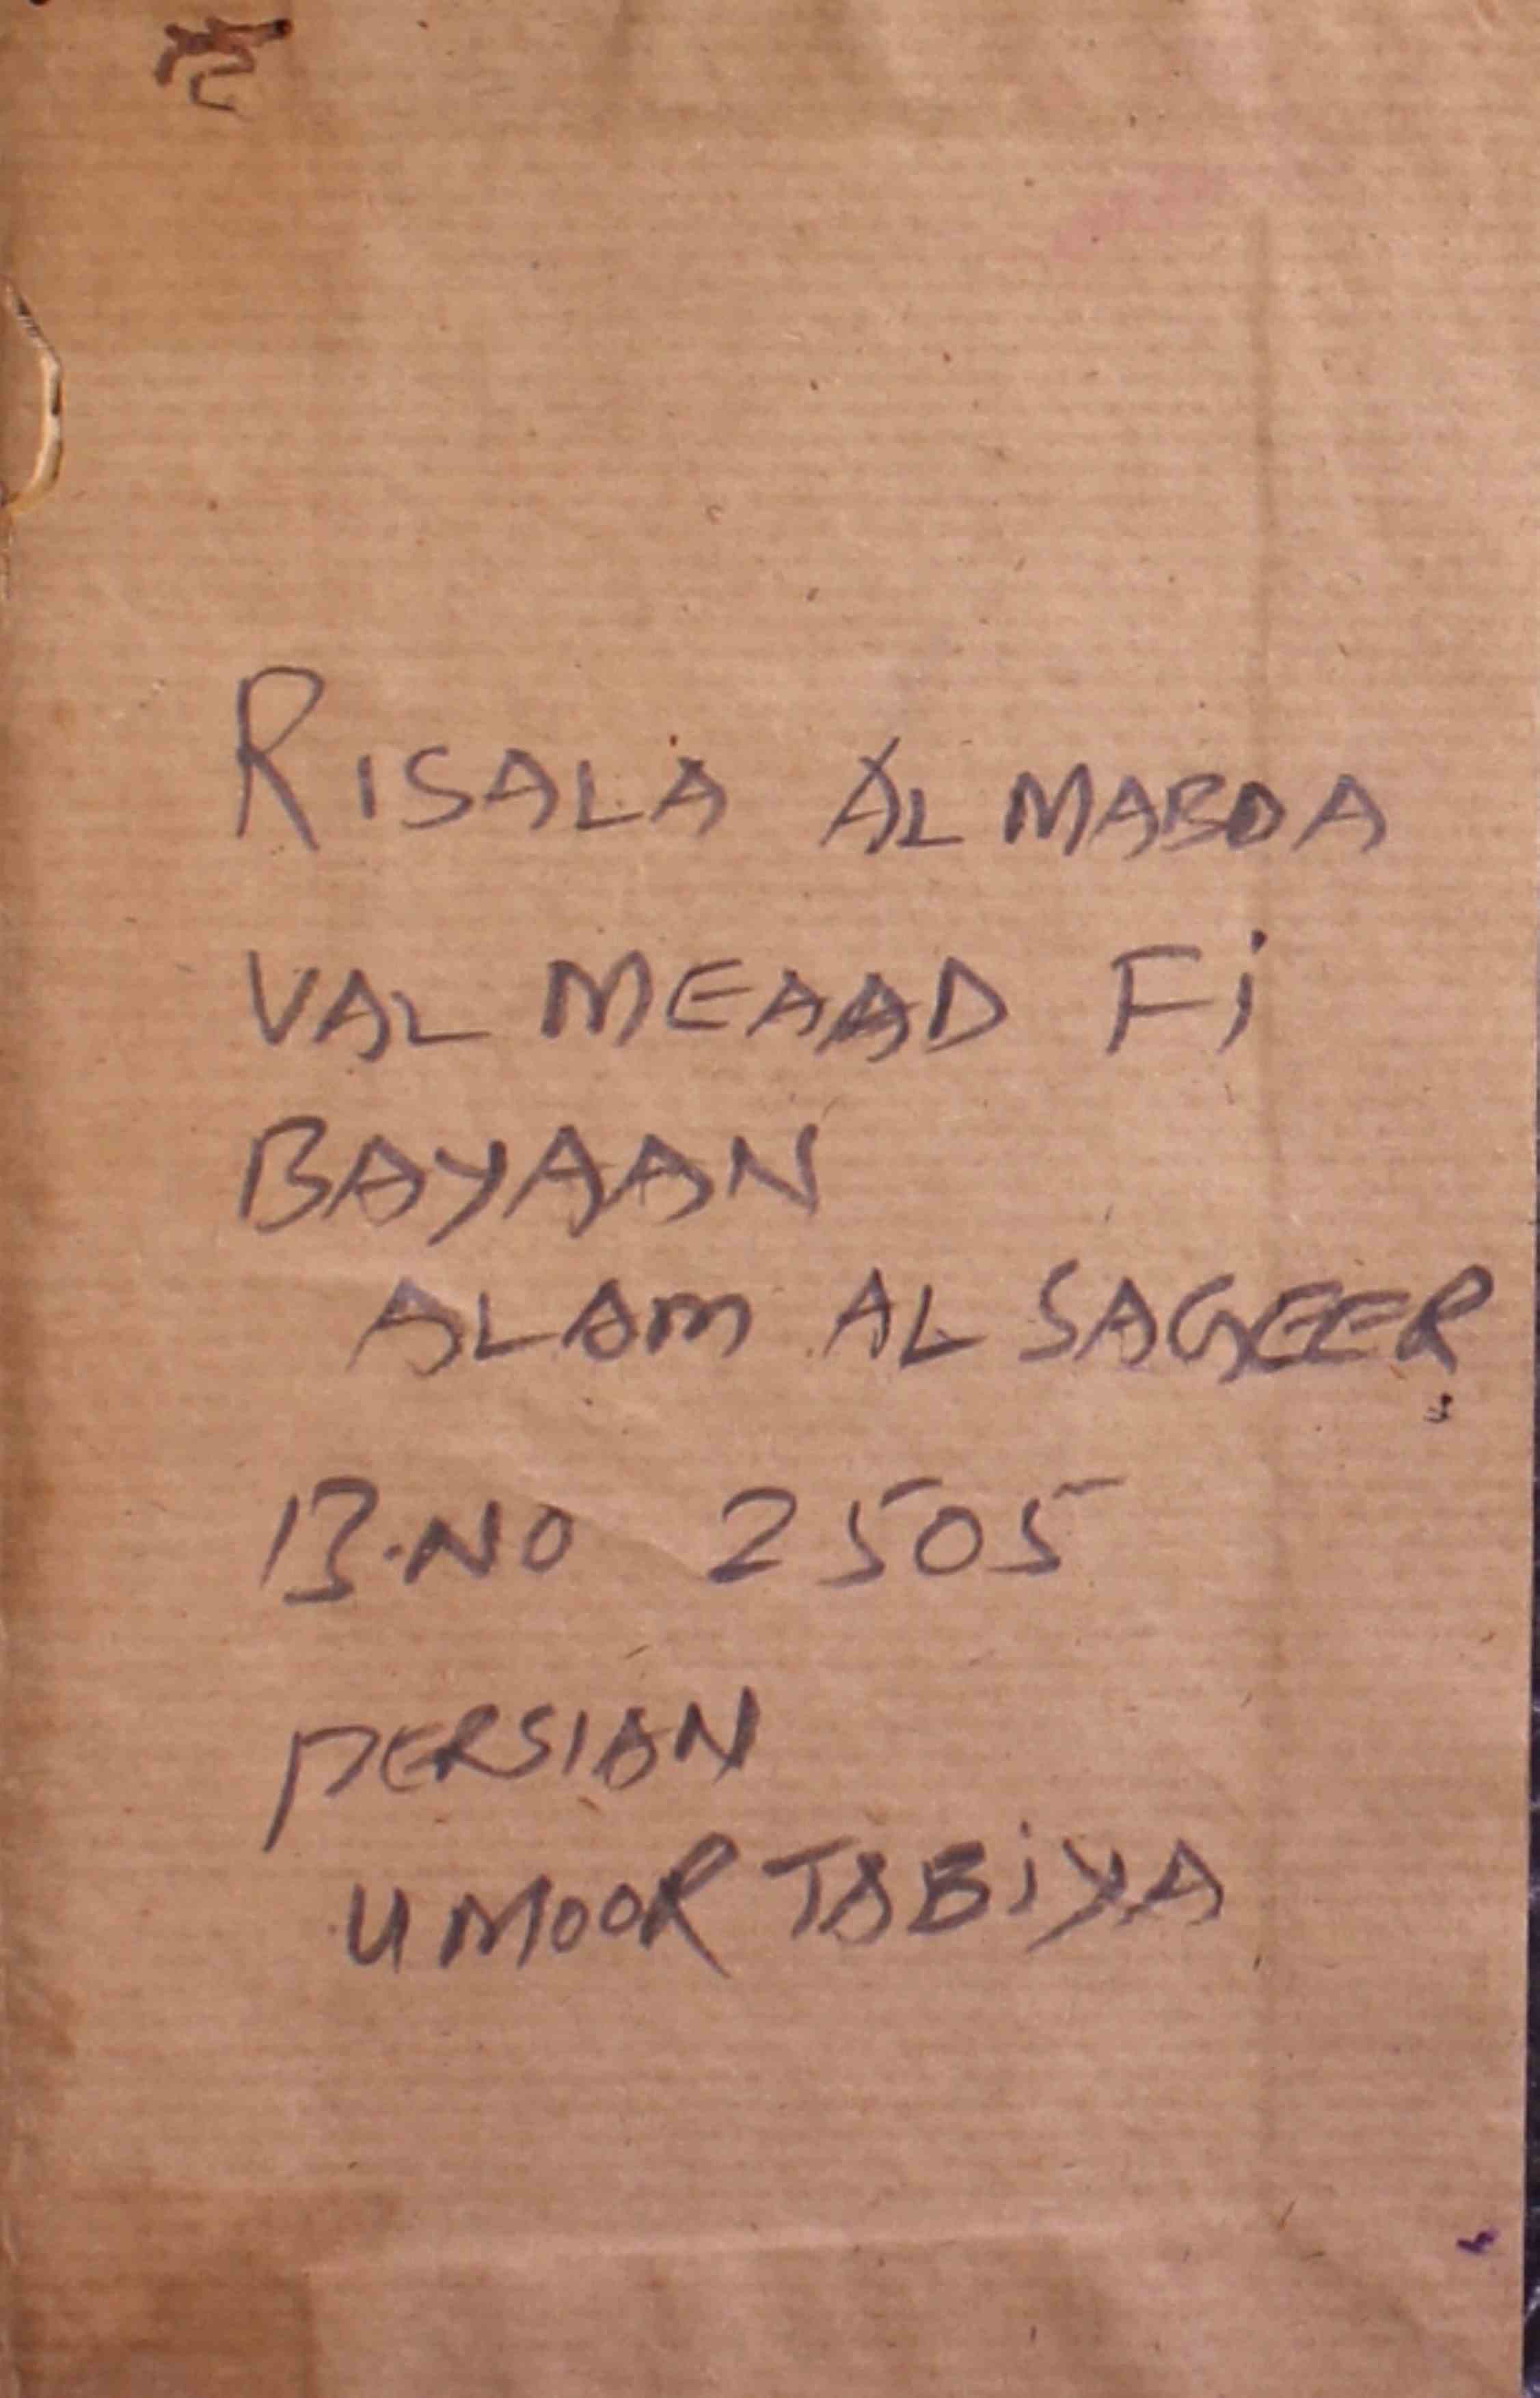 RISALA AL MABDA
VAL MEAAD Fi
BAYAAN
ALAM AL SAGEER
B.NO 2505
PERSIAN
UMOOR TABiYA